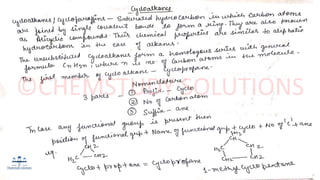 Cycloalkanes
Cycloalkanes / Cycloparaffins - Saturated hydrocarbon in which carbon atoms
are joined by single covalent bonds to form a ring. They are also known
as Alicyclic compounds. Their chemical properties are similar to aliphatic
hydrocarbon in the case of alkanes.
The unsubstituted Cycloalkanes form a homologous series with general
formula CnH2n, where n is no of Carbon atoms in the molecule.
The first member of Cycloalkane - Cyclopropane.
Nomenclature
3 parts - ① Prefix - Cyclo
② No of Carbon atom
③ Suffix - ane
In case any functional group is present then
position of functional grp + Name of functional grp + cyclo + No of 'C' + ane
eg.
CH2
H2C
CH2
Cyclo + prop + ane = Cyclopropane
CH3
CH
H2C
CH2
CH2
CH2
1-methyl cyclopentane
©CHEMISTRY SOLUTIONS